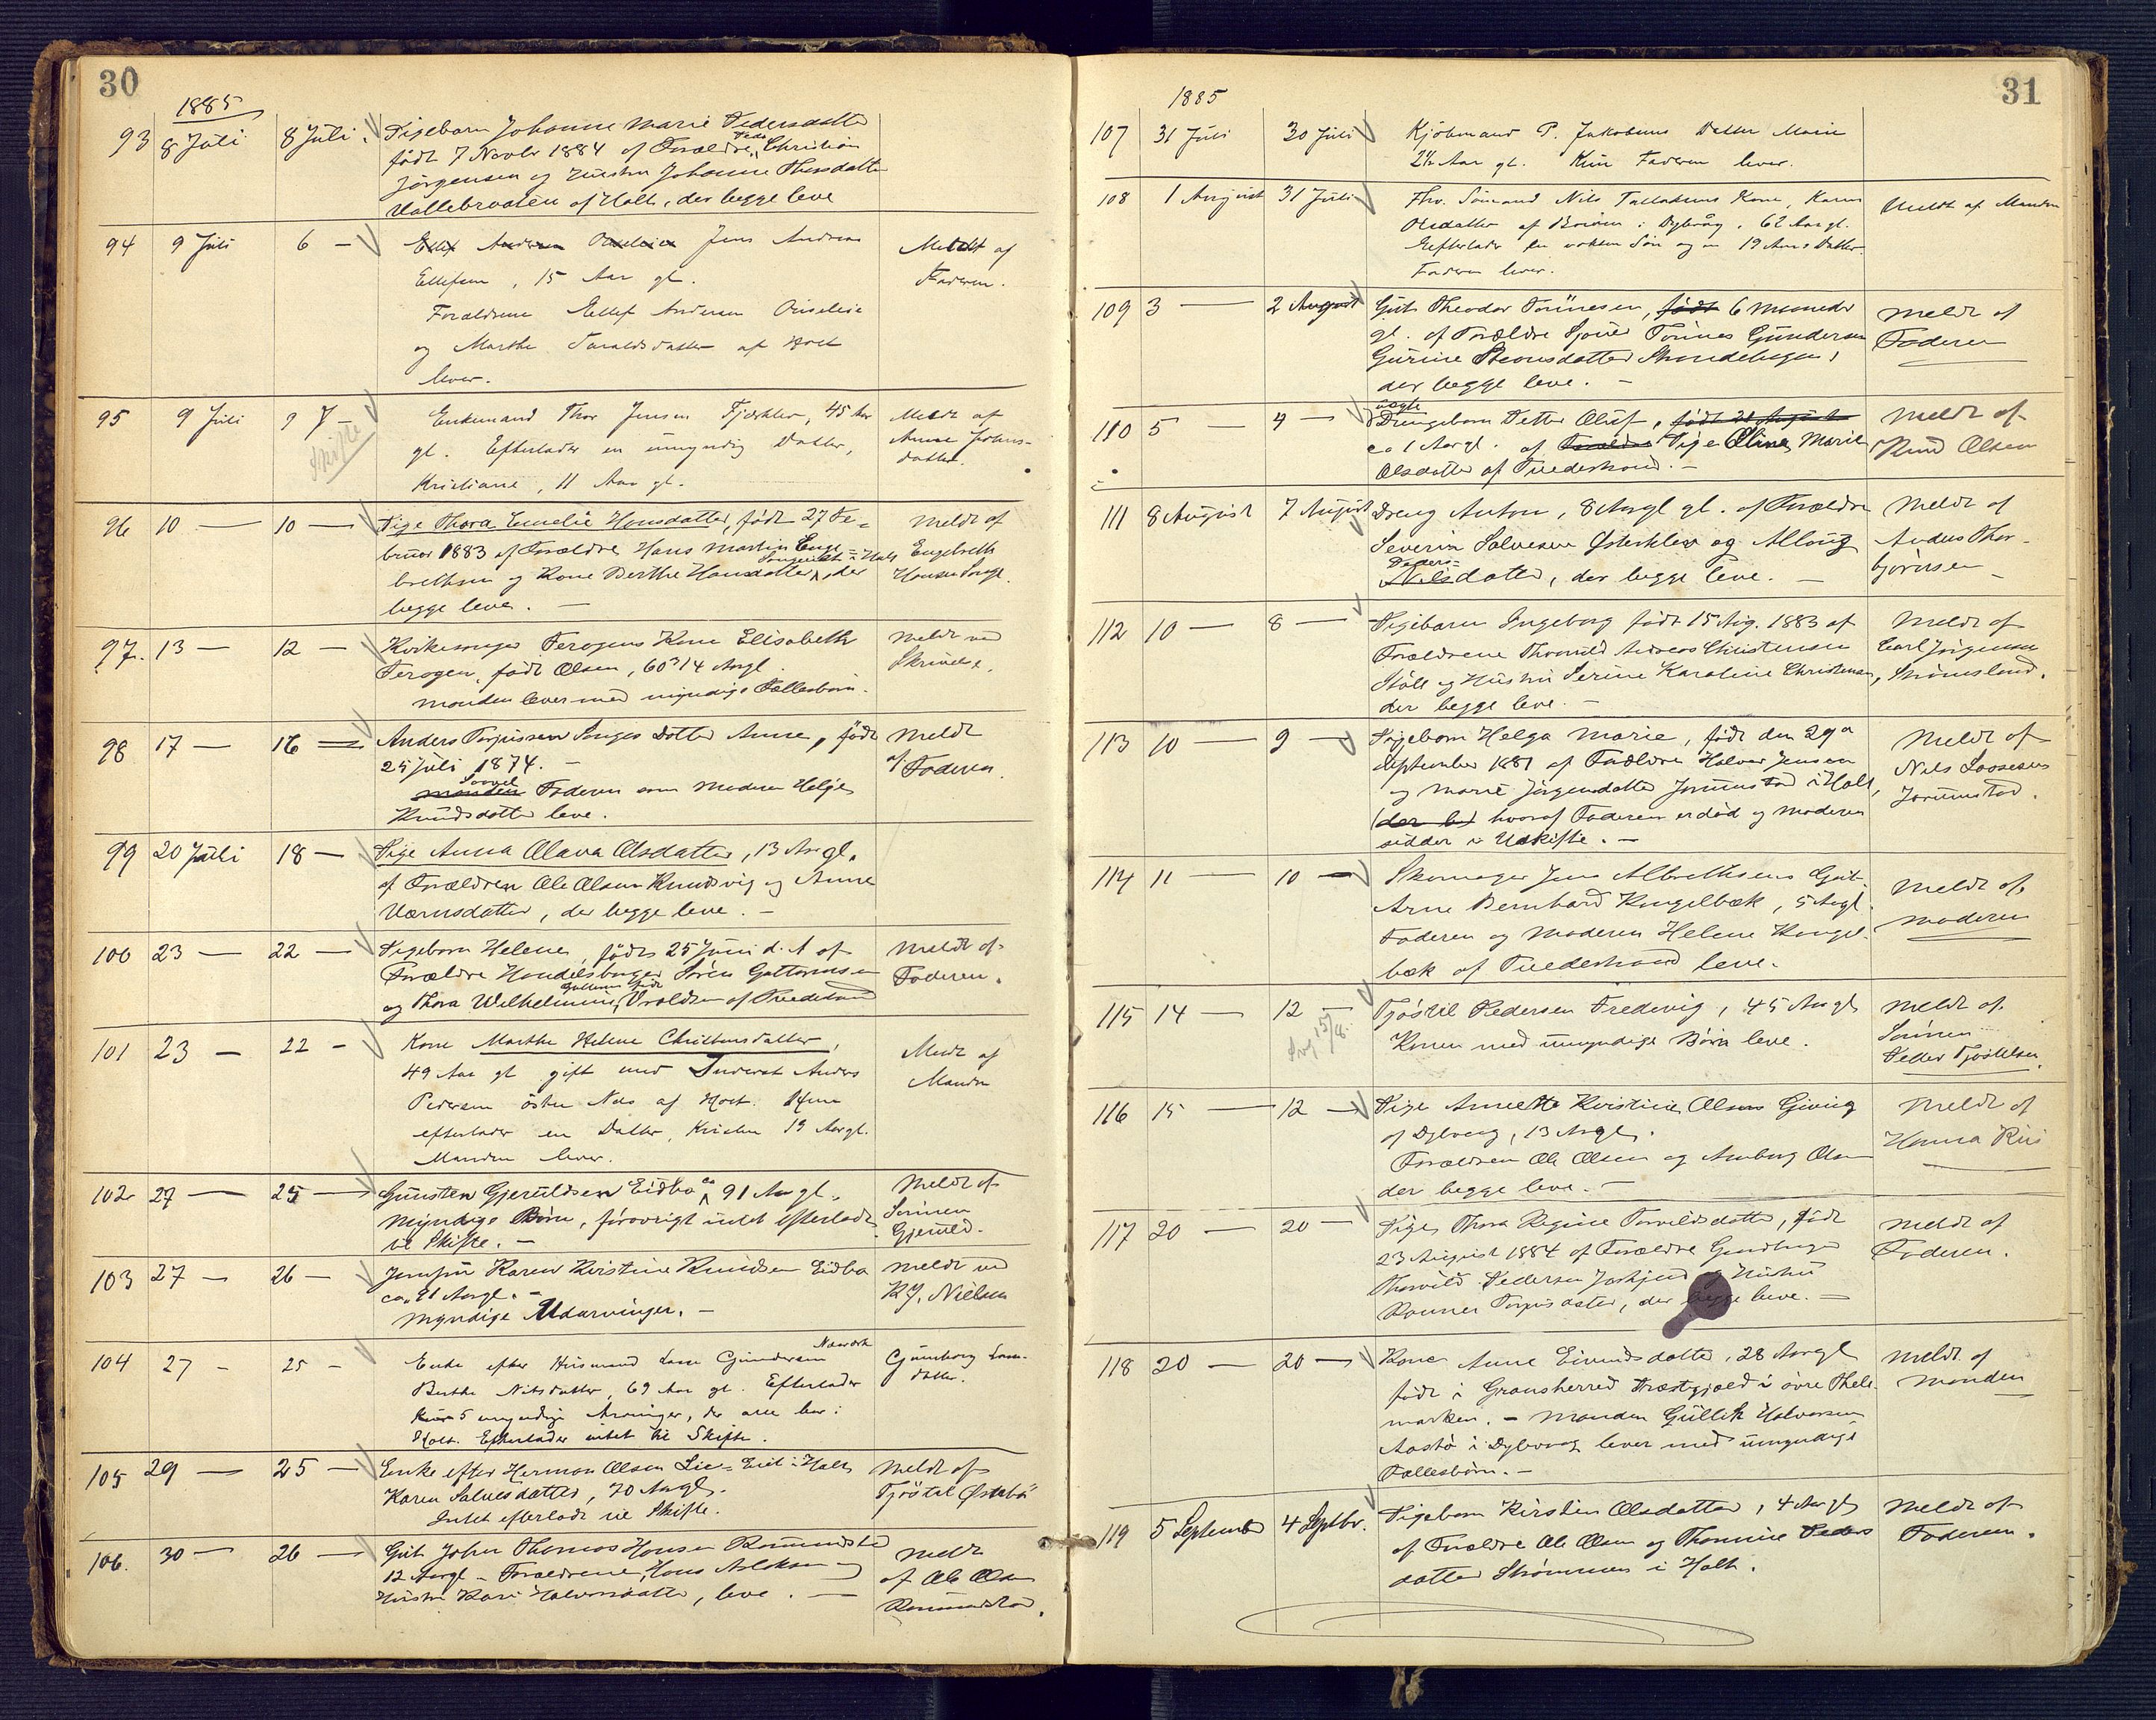 30
1885
93 8 Juli 8 Juli Pigebarn Johanne Marie Pedersdatter
født 7 Novbr 1884 af Forældre Peder Christian
Jørgensen og Hustru Johanne Thorsdatter
Vallebraaten af Holt, der begge leve
94 9 Juli 6 — Jens Andreas
Ellefsen, 15 Aar gl.
Forældrene Ellef Andersen
og Marthe Taraldsdatter af Holt
lever.
Meldt af
Faderen.
95 9 Juli 9 J — Enkemand Thor Jensen Fjærkleiv, 45 Aar
gl. Efterlader en umyndig Datter,
Kristiane, 11 Aar gl.
Skifte
Meldt af
Anne Johns-
datter.
96 10 — 10 — Pige Thora Emelie Hansdatter, født 27 Fe-
bruar 1883 af Forældre Hans Martin Enge-
brethsen og Kone Berthe Hansdatter Songekilt i Holt, der
begge lever. —
Meldt af
Engebreth
Hansen Songe.
97. 13 — 12 — Kirkesanger Terogens Kone Elisabeth
Terogen, født Olsen, 60 3/4 Aargl.
Manden lever med myndige Fællesbørn.
Meldt ved
Skrivelse.
98 17 — 16 — Anders Torjussen Songes Datter Anne, født
25 Juli 1874. —
Manden Saavel Faderen som Moderen Helje
Knudsdatter leve.
Meldt
af Faderen.
99 20 Juli 18 — Pige Anna Olava Olsdatter, 13 Aargl.
af Forældren Ole Olsen Knudsvig og Anne
Værnsdatter, der begge leve. —
100 23 — 22 — Pigebarn Helene, født 25 Juni d. A af
Forældre Handelsborger Søren Guttormsen
og Thora Wilhelmine Guttormsen født Vroldsen af Tvedestrand
Meldt af
Faderen.
101 23 — 22 — Kone Marthe Helene Christensdatter,
49 Aar gl gift med Inderst Anders
Pedersen østre Næs af Holt. Hun
efterlader en Datter, Kirsten 19 Aargl.
Manden lever.
Meldt af
Manden
102 27 — 25 — Gunsten Gjeruldsen Eidbo ca 91 Aargl.
Myndige Børn, forøvrigt intet efterladt
til Skifte. —
Meldt af
Sønnen
Gjeruld.
103 27 — 26 — Jomfru Karen Kirstine Knudsen Eidbo
ca. 81 Aargl. —
Myndige Udarvinger. —
Meldt ved
K.J. Nielsen
104 27 — 25 — Enke efter Husmand Lars Gundersen Næsverk
Berthe Nilsdatter, 69 Aar gl. Efterlader
kun 5 myndige Arvinger, der alle bor i
Holt. Efterlader intet til Skifte.
Gunborg Lars-
datter.
105 29 — 25 — Enke efter Herman Olsen Lie-Eiet i Holt,
Karen Salvesdatter, 70 Aargl.
Intet efterladt til Skifte.
Meldt af
Tjøstel Østebø
106. 30 — 26 — Gut John Thomas Hansen Rommundstad
12 Aargl — Forældrene, Hans Aslaksen og
Hustru Kari Halvorsdatter, leve. —
Meldt
af Ole Olsen
Rommundstad.
31
1885
107 31 Juli 30 Juli Kjøbmand P. Jakobsens Datter Marie
2 1/2 Aar gl. Kun Faderen lever.
108 1 August 31 Juli Fhv. Sømand Nils Tallaksens Kone, Karen
Olsdatter af Dybvåg, 62 Aar gl.
Efterlader en voksen Søn og en 19 Aars Datter.
Faderen lever.
Meldt af Manden
109 3 — 2 August Gut Theodor Tønnesen, født 6 Maaneder
gl. af Forældre Tønnes Gundersen
Gurine Steensdatter Strandehagen,
der begge leve. —
Meldt af
Faderen
110 5 — 4 — uægte
Drengebarn Petter Oluf, født 21 August
ca 1 Aargl. af Forældre Pige Oline Marie
Olsdatter af Tvedestrand. —
Meldt af
Knud Olsen
111 8 August 7 August Dreng Anton, 8 Aargl gl. af Forældre
Severin Salvesen Østerkleiv og Allaug
Peders-
Nilsdatter, der begge leve. —
Meldt af
Anders Thor-
bjørnsen
112 10 — 8 — Pigebarn Ingeborg født 15 Aug. 1883 af
Forældrene Thorvald Andreas Christensen
og Hustru Serine Karoline Christensen,
der begge leve. —
Meldt af
Carl Jørgensen
Strømsland.
113 10 — 9 — Pigebarn Helga Marie, født den 29de
September 1881 af Forældre Halvor Jensen
og Marie Jørgensdatter Jorunstad i Holt,
(der b) hvoraf Faderen er død og Moderen
sidder i Uskifte. —
Meldt af
Nils Lassesen
Jorunstad.
114 11 — 10 — Skomager Jens Albrethsens Gut
Arne Bernhard Kongelbæk, 5 Aargl.
Faderen og Moderen Helene Kongel-
bæk af Tvedestrand leve.
Meldt af
Moderen
115 14 — 12 — Tjøstel Pedersen Fredevig, 45 Aargl
Konen med umyndige Børn leve.
15/8.
Meldt af
Sønnen
Peder Tjøstelsen.
116 15 — 12 — Pige Annette Kristine Olsen Gjeving
af Dybvaag, 13 Aargl.
Forældren Ole Olsen og Anborg Olsen
der begge leve. —
Meldt af
Hanna Riis
117 20 — 20 — Pige Thora Regine Torvildsdatter, født
23 August 1884 af Forældre Gaardbruger
Thorvild Pedersen og Hustru
Torjusdatter, der begge leve. —
Meldt af
Faderen.
118 20 — 20 — Kone Anne Eivindsdatter, 28 Aargl
født i Gransherred Præstegjæld i øvre Thele-
marken. — Manden Gullik Halvorsen
Aastø i Dybvaag lever med umyndige
Fællesbørn. —
Meldt af
Manden
119 5 September 4 Septbr. Pigebarn Kirstin Olsdatter, 4 Aargl
af Forældre Ole Olsen og Thomine Peders
datter Strømmen i Holt.
Meldt af
Faderen.